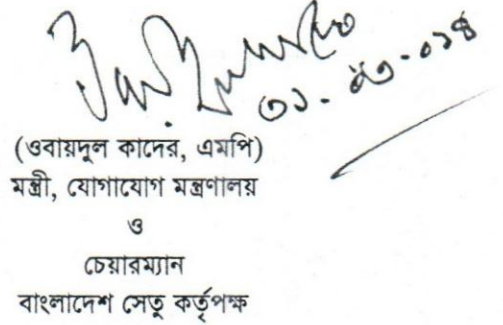 (ওবায়দুল কাদের, এমপি)
মন্ত্রী, যোগাযোগ মন্ত্রণালয়
ও
চেয়ারম্যান
বাংলাদেশ সেতু কর্তৃপক্ষ